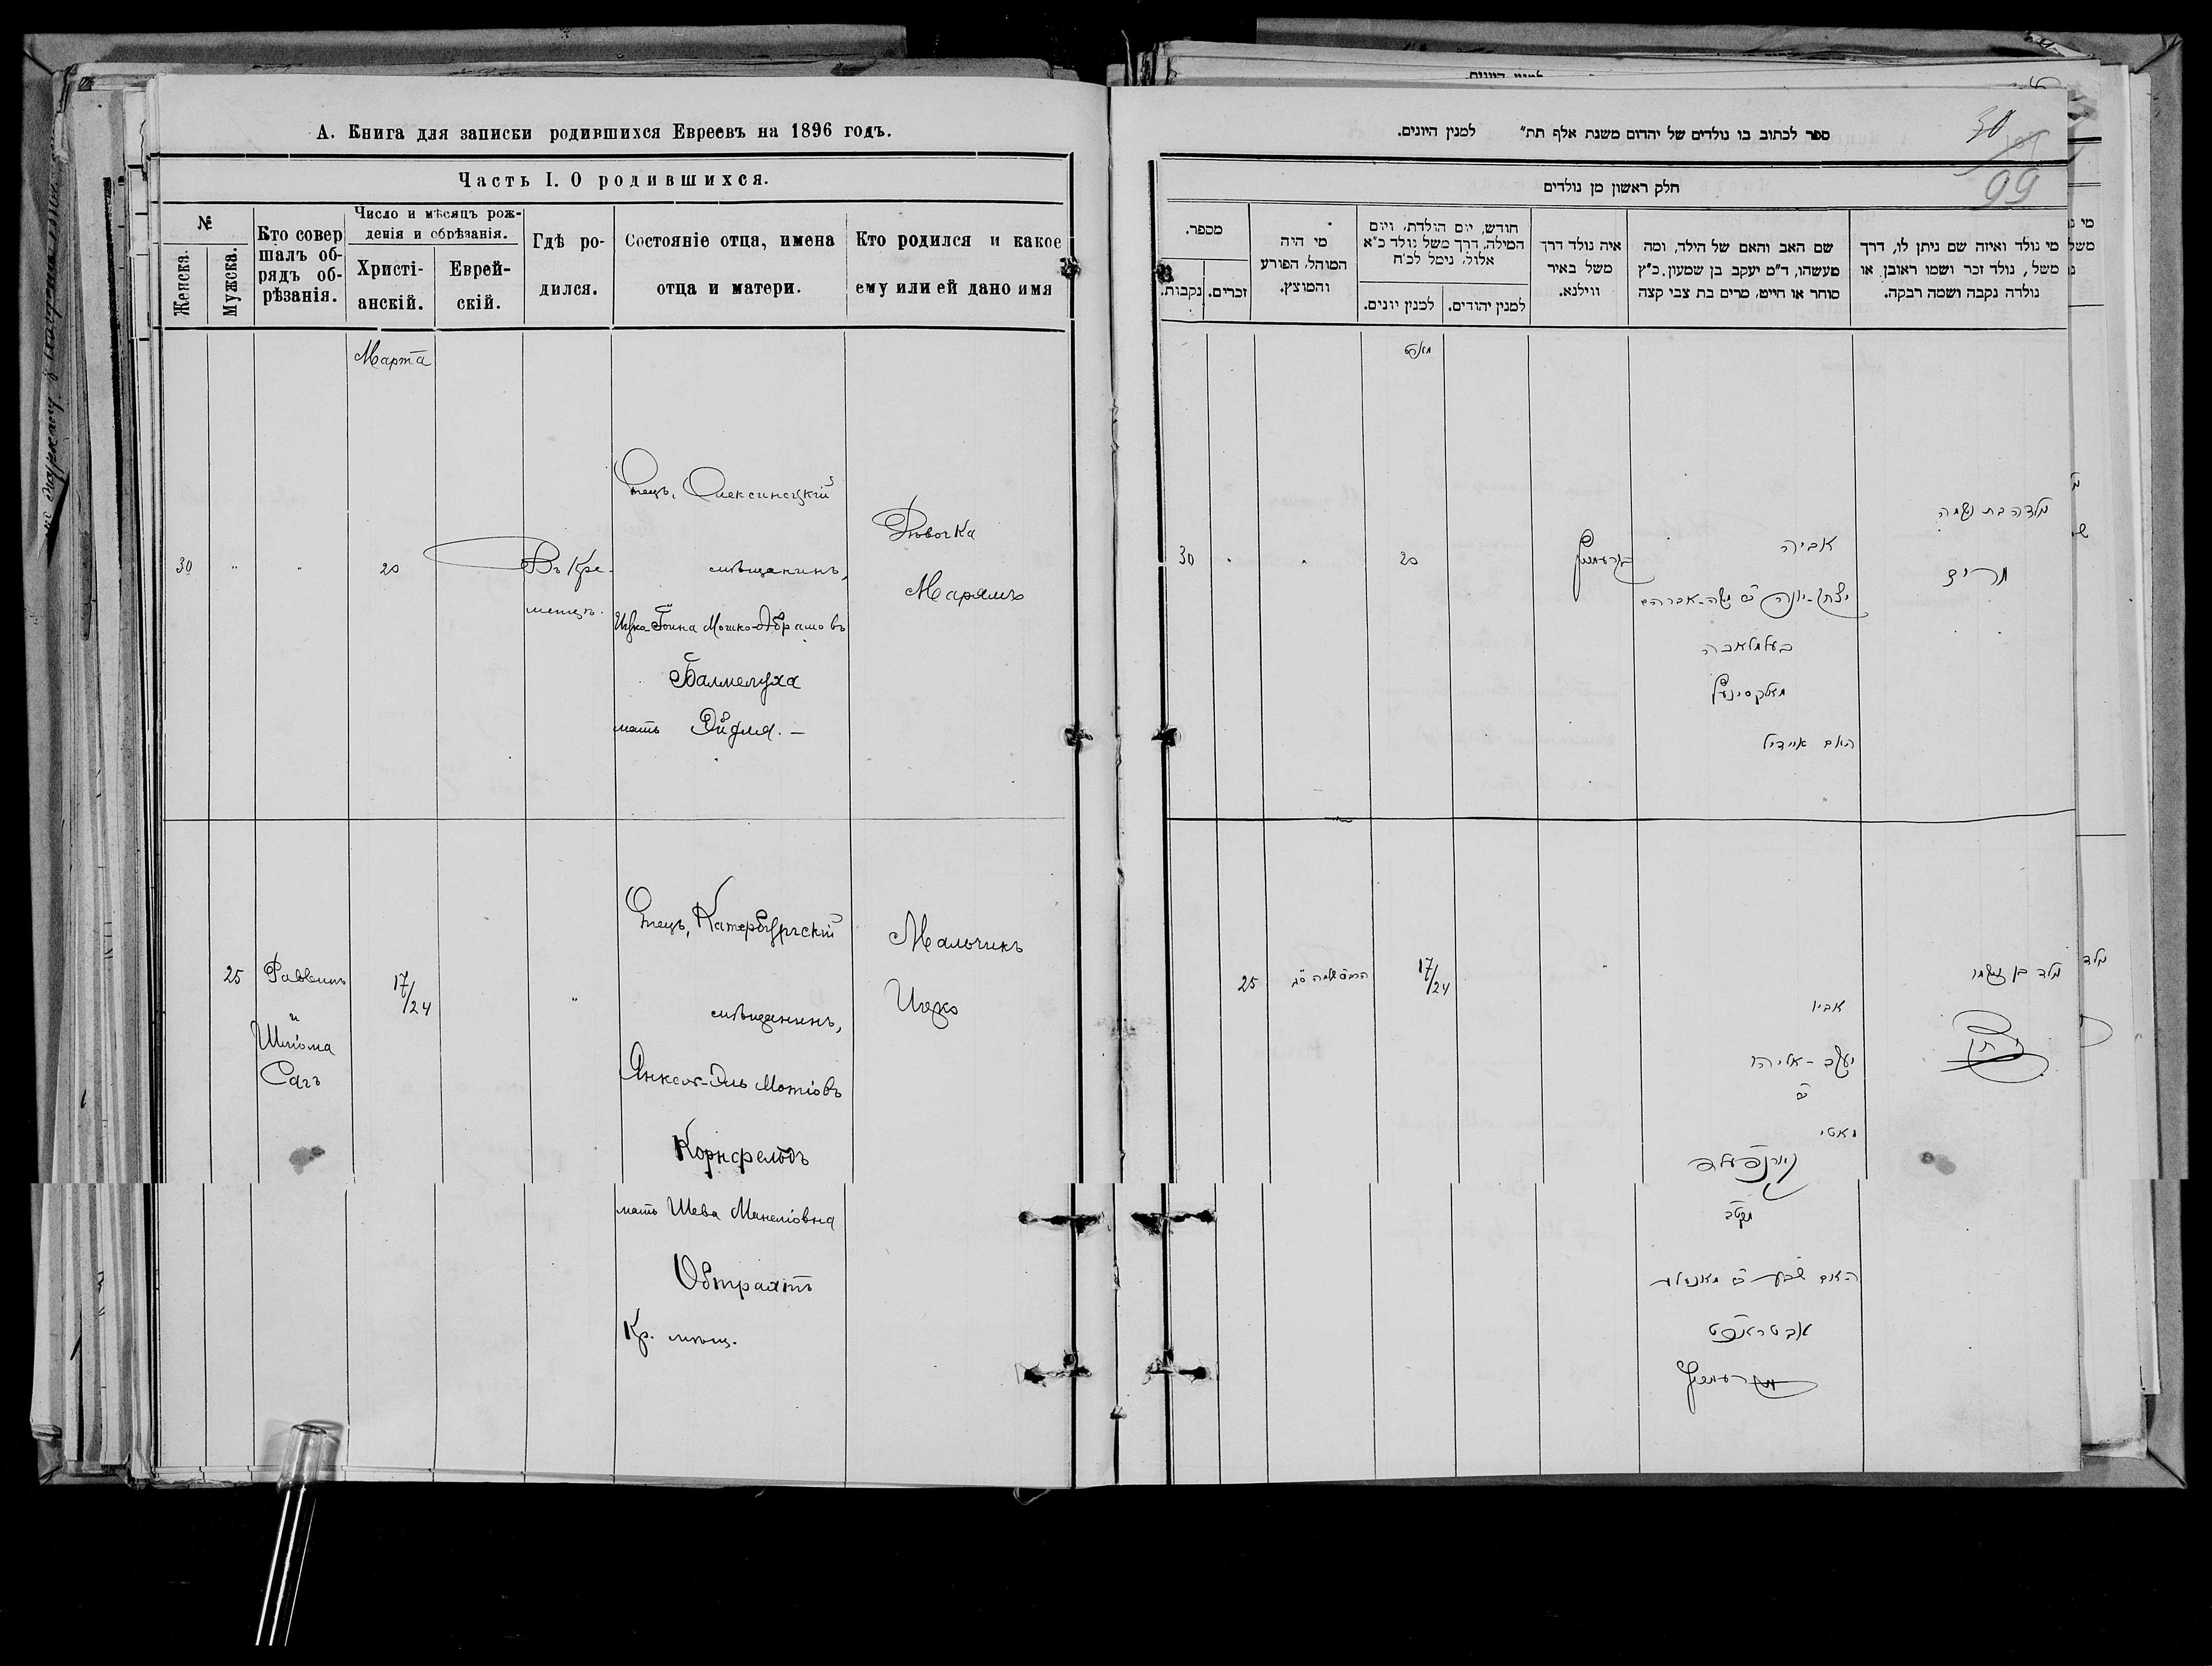 А. Книга для записки родившихся Евреевъ на 1896 годъ.
Часть I. О родившихся.
№
Женска.
Мужска.
Кто совер
шалъ об-
рядъ об-
рѣзанія.
Число и мѣсяцъ рож-
денія и обрѣзанія.
Христі-
анскій.
Еврей-
скій.
Гдѣ ро-
дился.
Состояніе отца, имена
отца и матери.
Кто родился и какое
ему или ей дано имя
Марта
30
"
"
20
Въ Кре-
менцѣ.
Отецъ, Олексинецкій
мѣщанинъ,
Ицко-Іойна Мошко-Абрамовъ
Балмелуха
мать Эйдля. –
Дѣвочка
Марямъ
25
Раввинъ
и
Шлiома
Сагъ
17/24
"
Отецъ, Катербургскій
мѣщанинъ,
Янкель-Эль Мотіовъ
Корнфельдъ
мать Шева Манеліовна
Обтрахтъ
Кр. мѣщ.
Мальчикъ
Ицко
ספר לכתוב בו נולדים של יהדום משנת אלף תת״ למנין היונים.
30
99
חלק ראשון מן נולדים
מספר.
נקבות.
זכרים.
מי היה
המוהל, הפורע
והמוצץ.
חודש, יום הולדת, ויום
המילה, דרך משל נולד כ״א
אלול, נימל לכ״ח
למנין יונים.
למנין יהודים.
איה נולד דרך
משל באיר
ווילנא.
שם האב והאם של הילד, ומה
מעשהו, ד״מ יעקב בן שמעון. כ״ץ
סוחר או חייט, מרים בת צבי קצה
מי נולד ואיזה שם ניתן לו, דרך
משל, נולד זכר ושמו ראובן או
נולדה נקבה ושמה רבקה.
מארט
30
"
"
20
אביה
יצחק-יונה ב״ר משה-אברהם
באלמלאכה
האם איידיל
ילדה בת ושמה
מרים
25
17/24
"
אביו
יעקב-אליהו
ב״ר
מאטי
קארנפעלד
האם שבע ב״ר מאנעלע
אבטראכט
ילד בן ושמו
יצחק